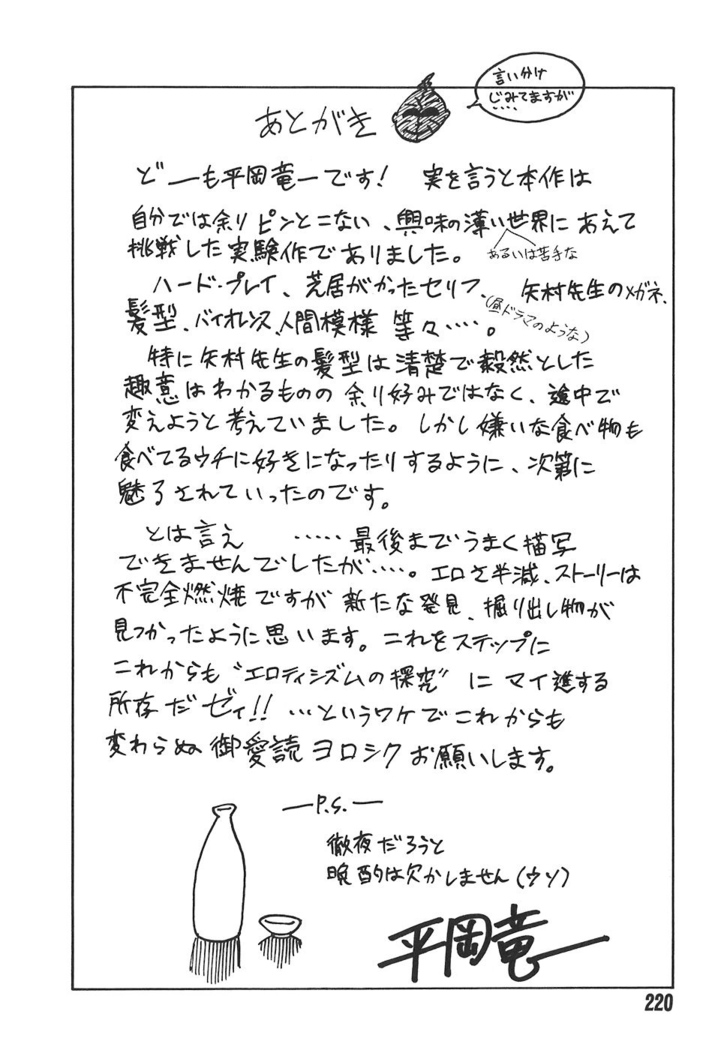 あとがき
言い分け
じみてますが
どーも平岡竜一です! 実を言うと本作は
自分では余りピンとこない、興味の薄い世界にあえて
あるいは苦手な
挑戦した実験作でありました。
ハード・プレイ、芝居がかったセリフ、矢村先生のメガネ、
(昼ドラマのような)
髪型、バイオレンス、人間模様 等々・・・・。
特に矢村先生の髪型は清楚で毅然とした
趣意はわかるものの 余り好みではなく、途中で
変えようと考えていました。しかし嫌いな食べ物も
食べてるウチに好きになったりするように、次第に
魅了されていったのです。
とは言え ・・・・・最後までうまく描写
できませんでしたが・・・・。エロさ半減、ストーリーは
不完全燃焼ですが 新たな発見、掘り出し物が
見つかったように思います。これをステップに
これからも“エロティシズムの探究”に マイ進する
所存だゼィ!! ・・・というワケでこれからも
変わらぬ御愛読ヨロシクお願いします。
―P.S.―
徹夜だろうと
晩酌は欠かしません(ウソ)
平岡竜一
220